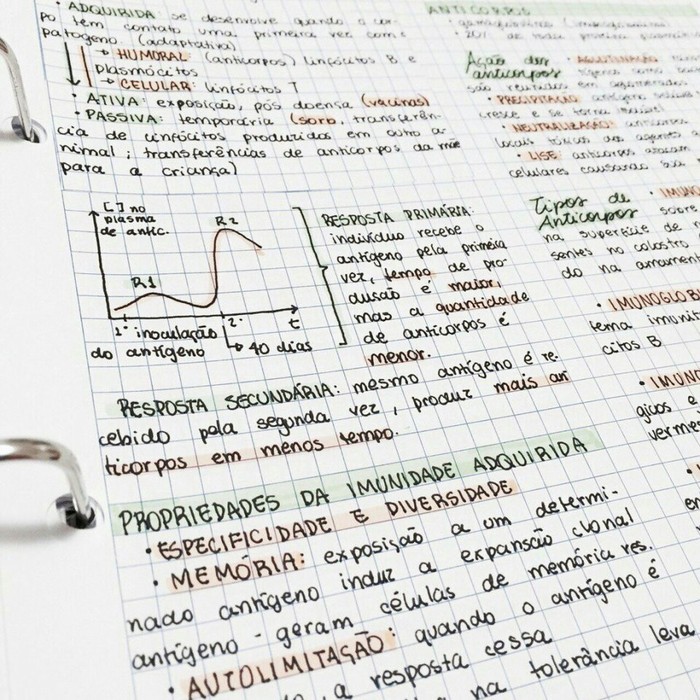 • ADQUIRIDA: se desenvolve quando o cor-
po tem contato uma primeira vez com o
patogeno (adaptativa)
→ HUMORAL: (anticorpos) linfócitos B e
plasmócitos
→ CELULAR: linfócitos T
• ATIVA: exposição, pós doensa (vacinas)
• PASSIVA: temporária (soro, transferên-
cia de linfócitos produzidos em outro a-
nimal; transferências de anticorpos da mãe
para a criança)
[ ] no
plasma
de antic.
R1
R2
1ª inoculação
do antígeno
2ª
t
↳ 40 dias
RESPOSTA PRIMÁRIA:
indivíduo recebe o
antígeno pela primeira
vez, tempo de pro-
dusão é maior,
mas a quantidade
de anticorpos é
menor.
RESPOSTA SECUNDÁRIA: mesmo antígeno é re-
cebido pela segunda vez, produz mais an
ticorpos em menos tempo.
PROPRIEDADES DA IMUNIDADE ADQUIRIDA
• ESPECIFICIDADE E DIVERSIDADE
• MEMÓRIA: exposição a um determi-
nado antígeno induz a expansão clonal
antígeno - geram células de memória res.
• AUTOLIMITAÇÃO: quando o antígeno é
a resposta cessa
na tolerância leva
ANTICORPOS
Ação dos
anticorpos
• AGLUTINAÇÃO
são reunidos em aglomerados
• PRECIPITAÇÃO: antígeno
cresce e se torna
• NEUTRALIZAÇÃO: anticorpos
locais tóxicos dos agentes
• LISE: anticorpos atacam
celulares causando sua
Tipos de
Anticorpos
• IMUNO
sobre
na superfície de
sentes no colostro
do na amament
• IMUNOGLOB
tema imunit
citos B
• IMUNO
gicos e
verme